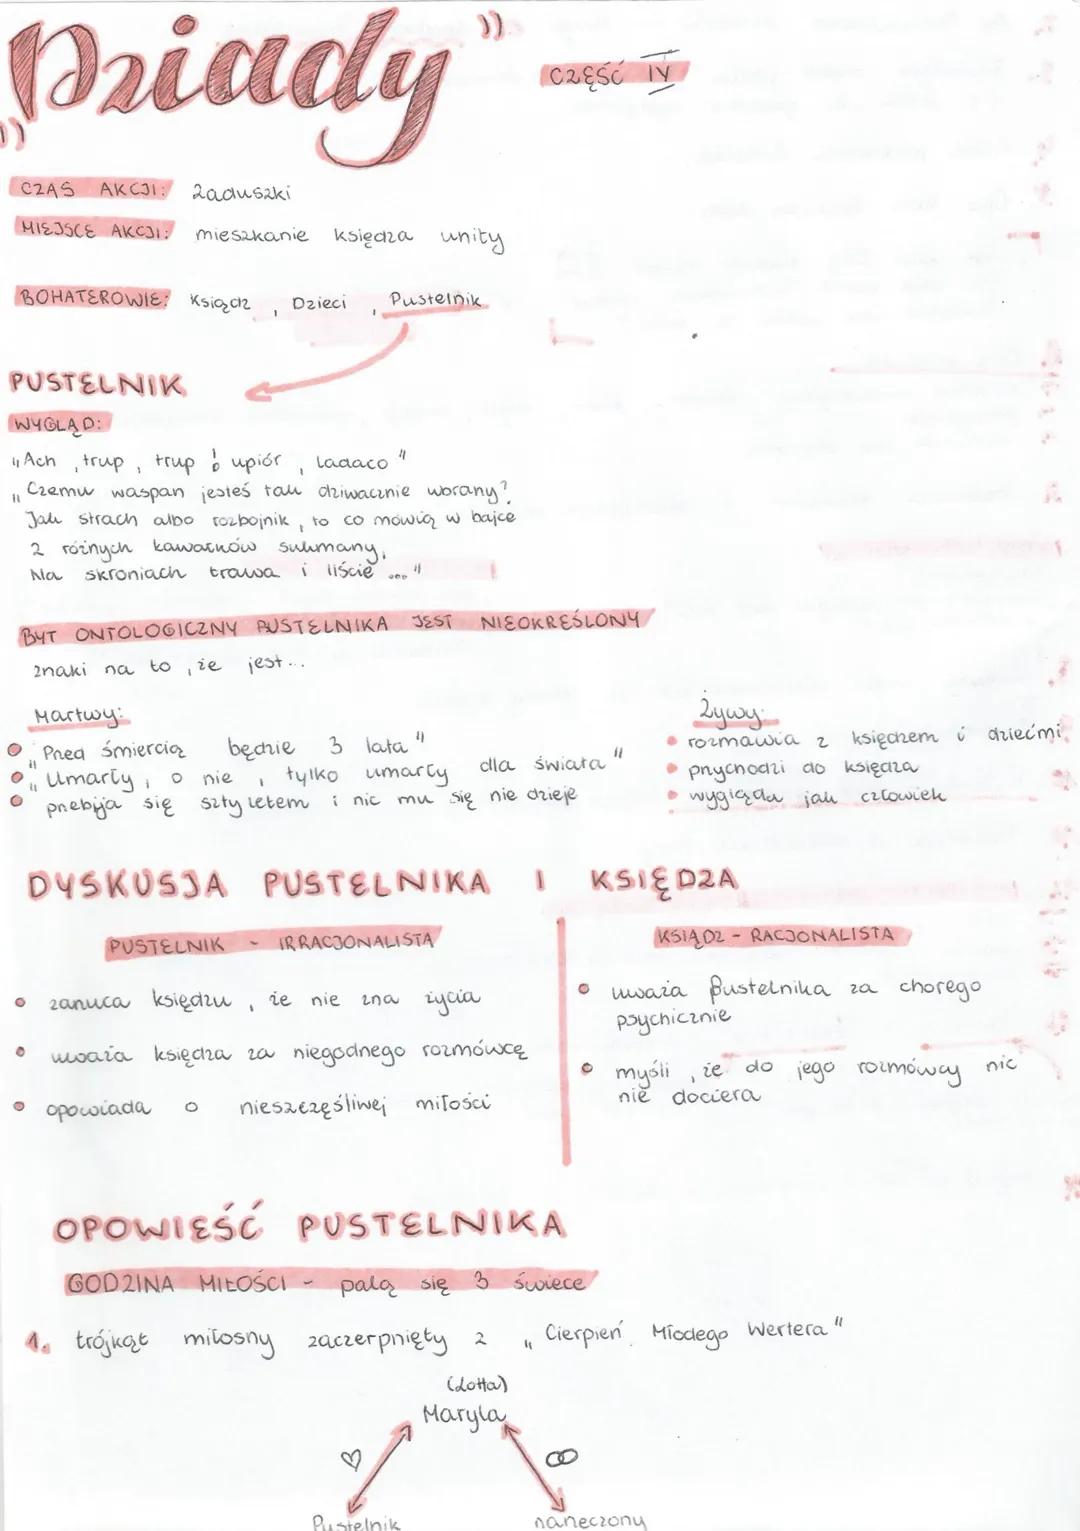 „Dziady"
CZĘŚĆ IV
CZAS AKCJI: Zaduszki
MIEJSCE AKCJI: mieszkanie księdza unity
BOHATEROWIE: Ksiądz, Dzieci, Pustelnik
PUSTELNIK
WYGLĄD:
„Ach, trup, trup! upiór, ladaco"
„Czemu waspan jesteś tak dziwacznie ubrany?
Jak strach albo rozbojnik, to co mówią w bajce
z różnych kawałków sukmany,
Na skroniach trawa i liście ..."
BYT ONTOLOGICZNY PUSTELNIKA JEST NIEOKREŚLONY
znaki na to, że jest...
Martwy:
„Przed śmiercią będzie 3 lata"
„Umarły, o nie, tylko umarły dla świata"
przebija się sztyletem i nic mu się nie dzieje
Żywy:
rozmawia z księdzem i dziećmi
przychodzi do księdza
wygląda jak człowiek
DYSKUSJA PUSTELNIKA I KSIĘDZA
PUSTELNIK - IRRACJONALISTA
zarzuca księdzu, że nie zna życia
uważa księdza za niegodnego rozmówcę
opowiada o nieszczęśliwej miłości
KSIĄDZ - RACJONALISTA
uważa Pustelnika za chorego
psychicznie
myśli, że do jego rozmówcy nic
nie dociera
OPOWIEŚĆ PUSTELNIKA
GODZINA MIŁOŚCI - palą się 3 świece
1. trójkąt miłosny zaczerpnięty z „Cierpień Młodego Wertera"
(Lotta)
Maryla
Pustelnik narzeczony